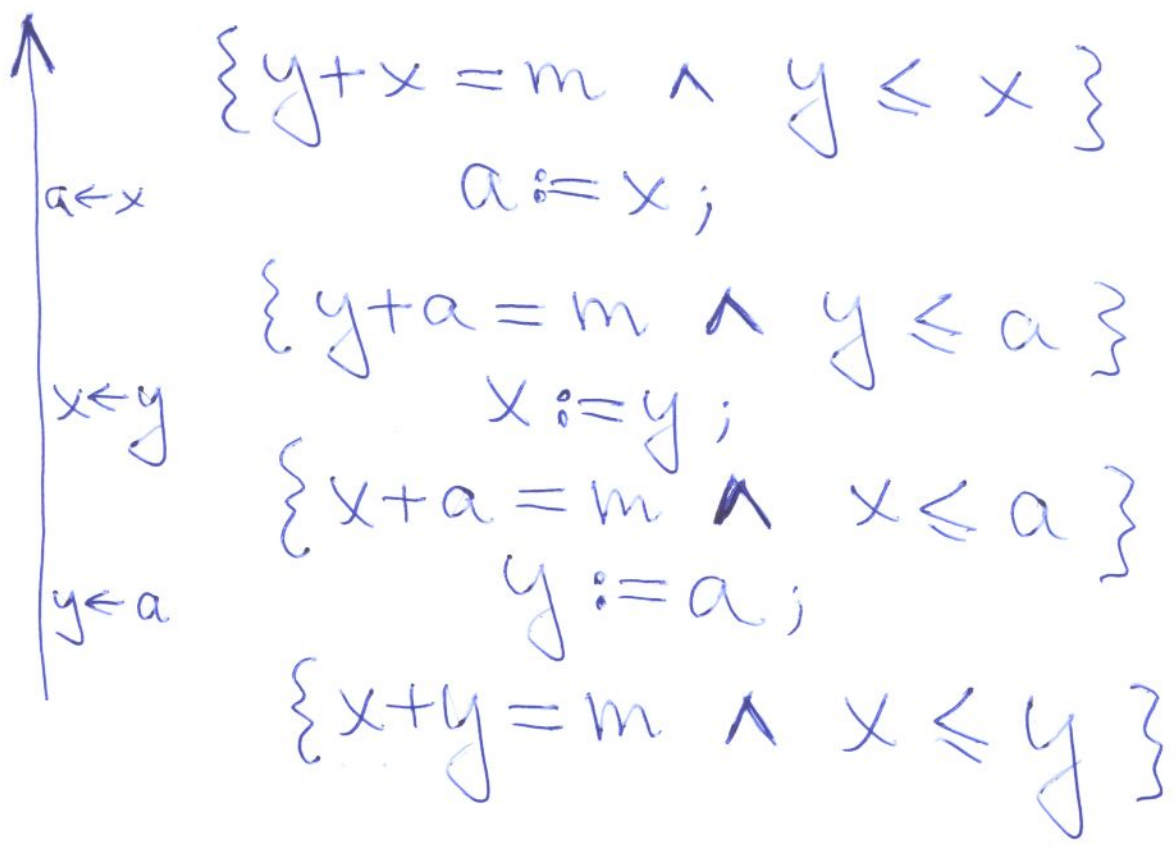 {y+x = m ∧ y ≤ x}
a←x a := x;
{y+a = m ∧ y ≤ a}
x←y x := y;
{x+a = m ∧ x ≤ a}
y←a y := a;
{x+y = m ∧ x ≤ y}